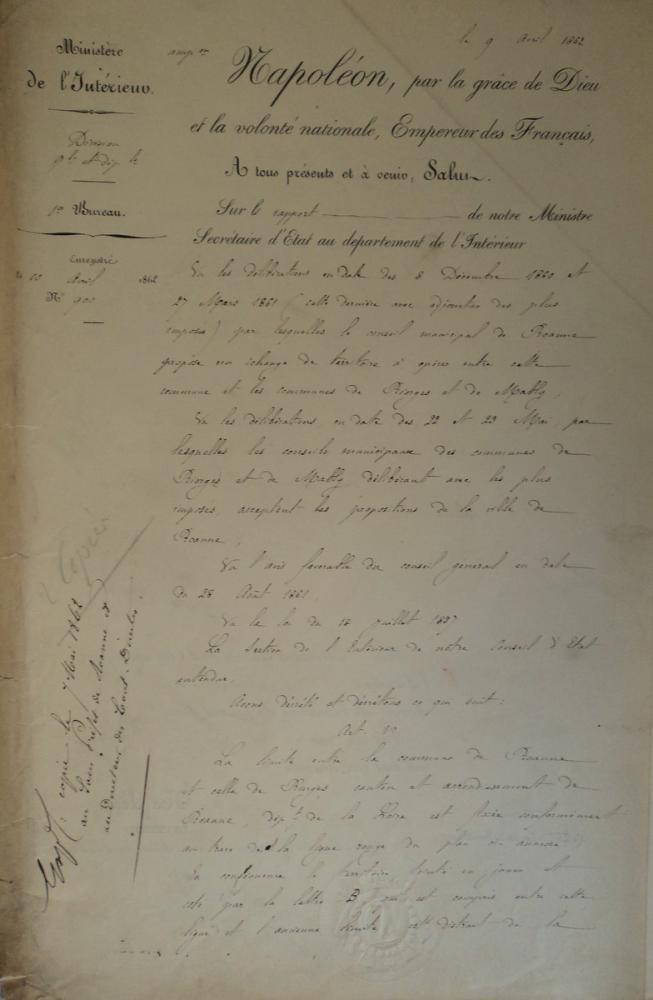 le 9 Avril 1862
Ministère
de l'Intérieur.
Division
1er Bureau.
enregistré
Avril 1862
No 900
Napoléon, par la grâce de Dieu
et la volonté nationale, Empereur des Français,
A tous présents et à venir, Salut.
Sur le rapport de notre Ministre
Secrétaire d'Etat au département de l'Intérieur
Vu les délibérations en date des 8 Décembre 1860 et
27 Mars 1861 (cette dernière avec adjonction des plus
imposés) par lesquelles le conseil municipal de Roanne
propose un échange de territoire à opérer entre cette
commune et les communes de Riorges et de Mably,
Vu les délibérations, en date des 22 et 23 Mai, par
lesquelles les conseils municipaux des communes de
Riorges et de Mably délibérant avec les plus
imposés, acceptent les propositions de la ville de
Roanne;
Vu l'avis favorable du conseil général en date
du 28 Août 1861,
Vu la loi du 18 Juillet 1837
La Section de l'Intérieur de notre Conseil d'Etat
entendue,
Avons décrété et décrétons ce qui suit:
Art. 1er
La limite entre la commune de Roanne
et celle de Riorges, canton et arrondissement de
Roanne, dépt de la Loire est fixée conformément
au tracé de la ligne rouge du plan ci-annexé
En conséquence le territoire teinté en jaune et
coté par la lettre B qui est compris entre cette
ligne et l'ancienne limite est distrait de la
Copié
copie le 7 Mai 1862
au Sous Préfet de Roanne et
au Directeur des Cont. Directes